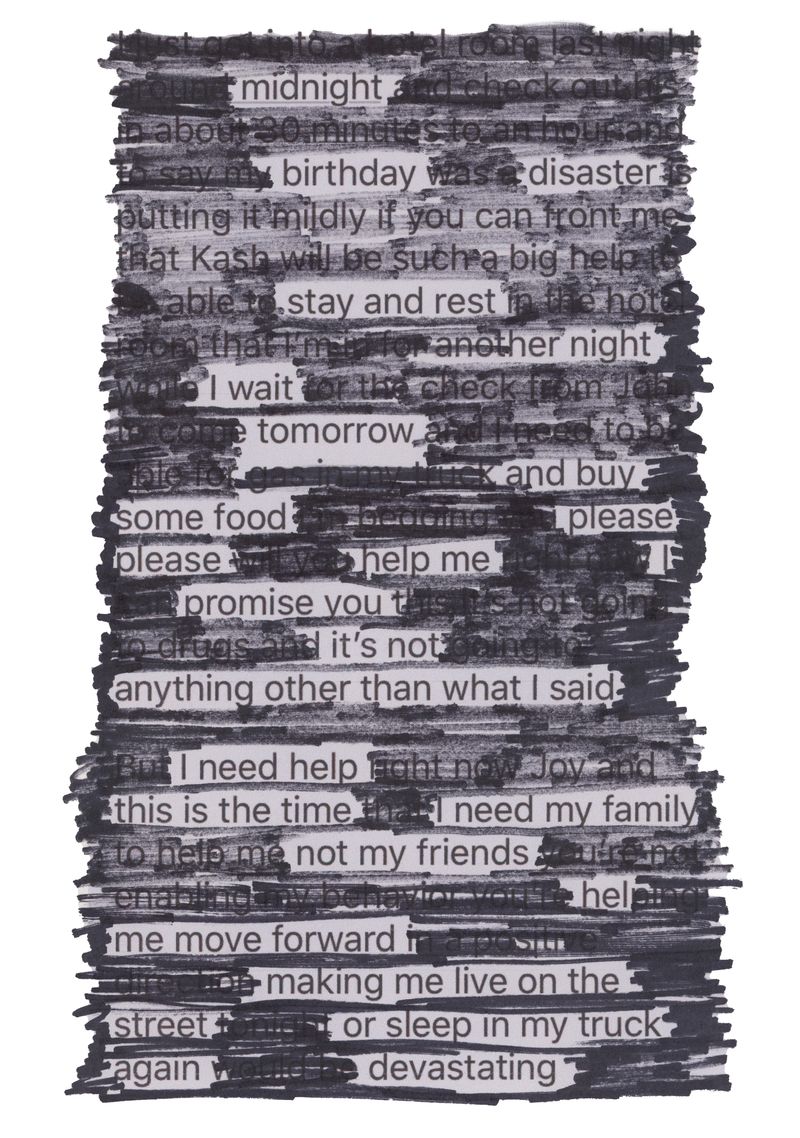 I just got into a hotel room last night
around midnight and check out his
in about 30 minutes to an hour and
to say my birthday was a disaster is
putting it mildly if you can front me
that Kash will be such a big help to
able to stay and rest in the hotel
room that I'm in for another night
while I wait for the check from John
to come tomorrow and I need to be
able for gas in my truck and buy
some food begging please
please will you help me right now I
can promise you this it's not going
to drugs and it's not going to
anything other than what I said
But I need help right now Joy and
this is the time that I need my family
to help me not my friends you're not
enabling my behavior you're helping
me move forward in a positive
direction making me live on the
street tonight or sleep in my truck
again would be devastating